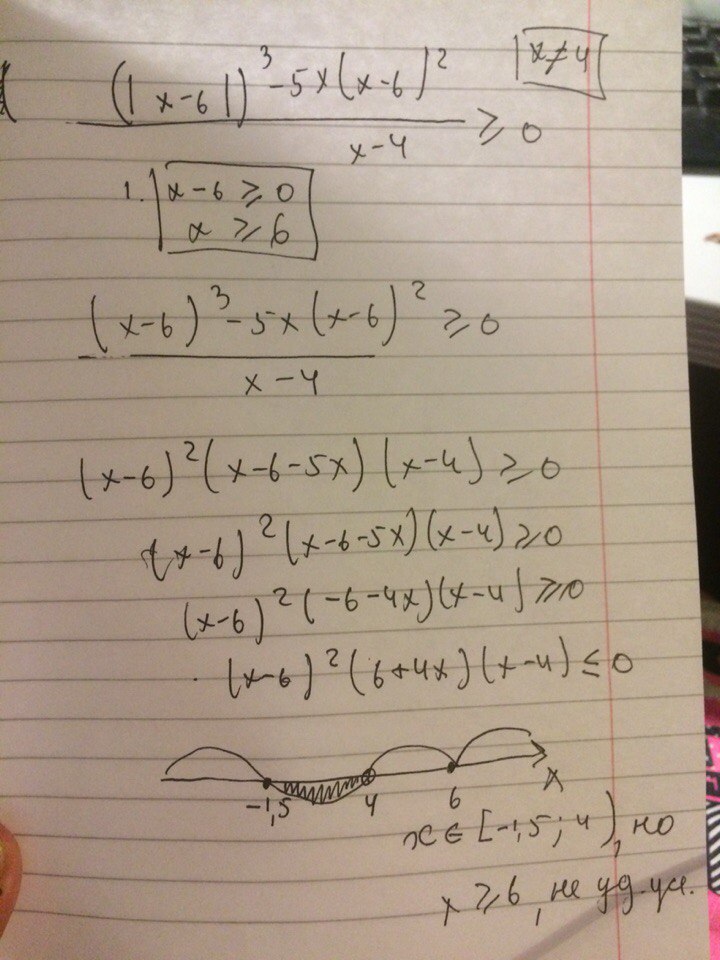 (|x-6|)³-5x(x-6)² / x-4 ≥ 0
x≠4
1. x-6 ≥ 0
x ≥ 6
(x-6)³-5x(x-6)² / x-4 ≥ 0
(x-6)²(x-6-5x)(x-4) ≥ 0
(x-6)²(x-6-5x)(x-4) ≥ 0
(x-6)²(-6-4x)(x-4) ≥ 0
(x-6)²(6+4x)(x-4) ≤ 0
-1,5 4 6 x
x ∈ [-1,5; 4), но
x ≥ 6, не уд. усл.